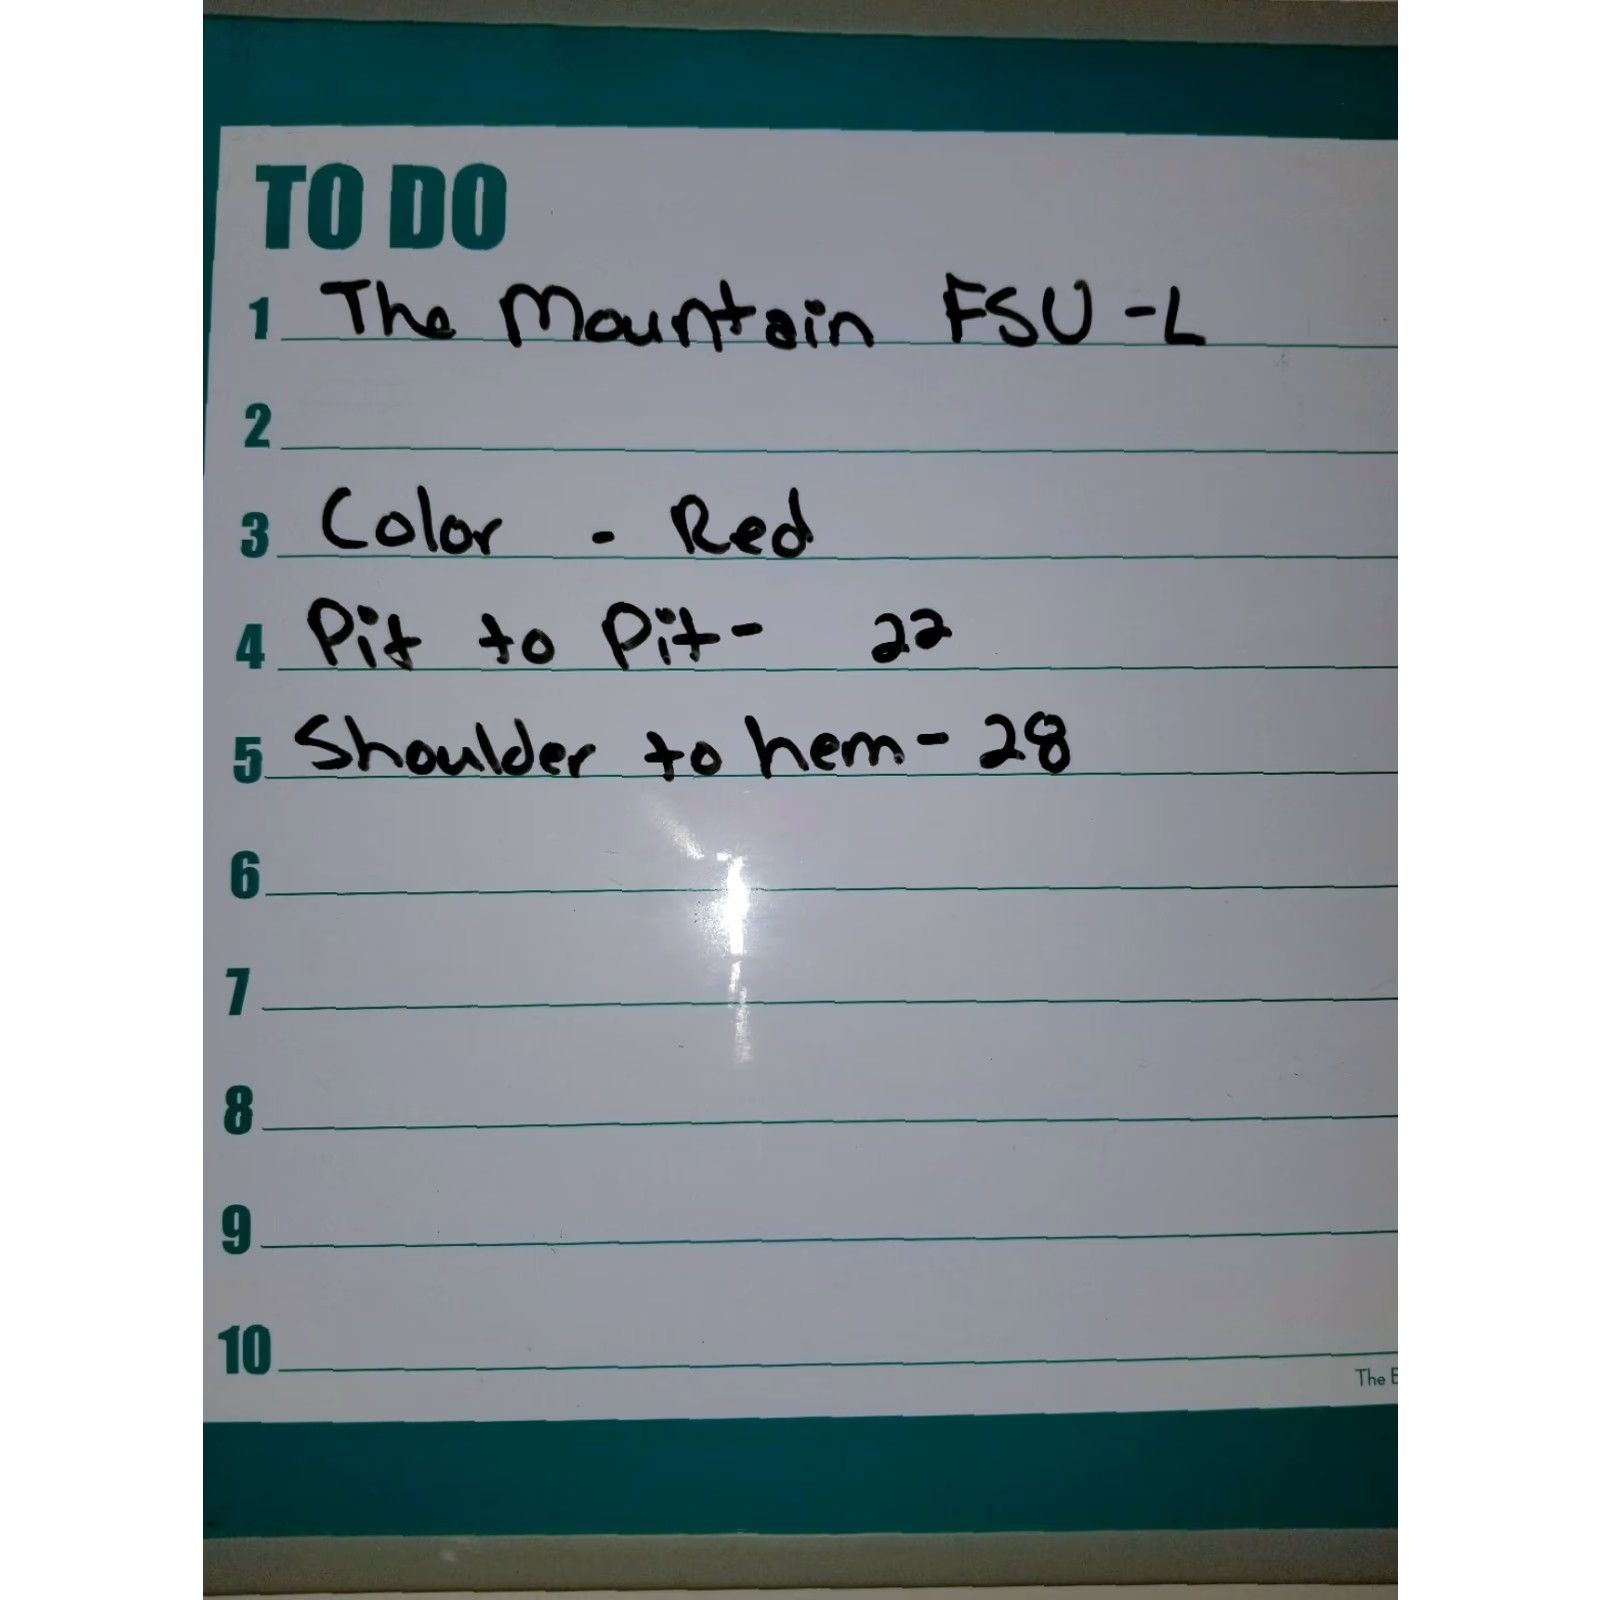 TO DO
1 The Mountain FSU -L
2
3 Color - Red
4 Pit to Pit- 22
5 Shoulder to hem- 28
6
7
8
9
10
The